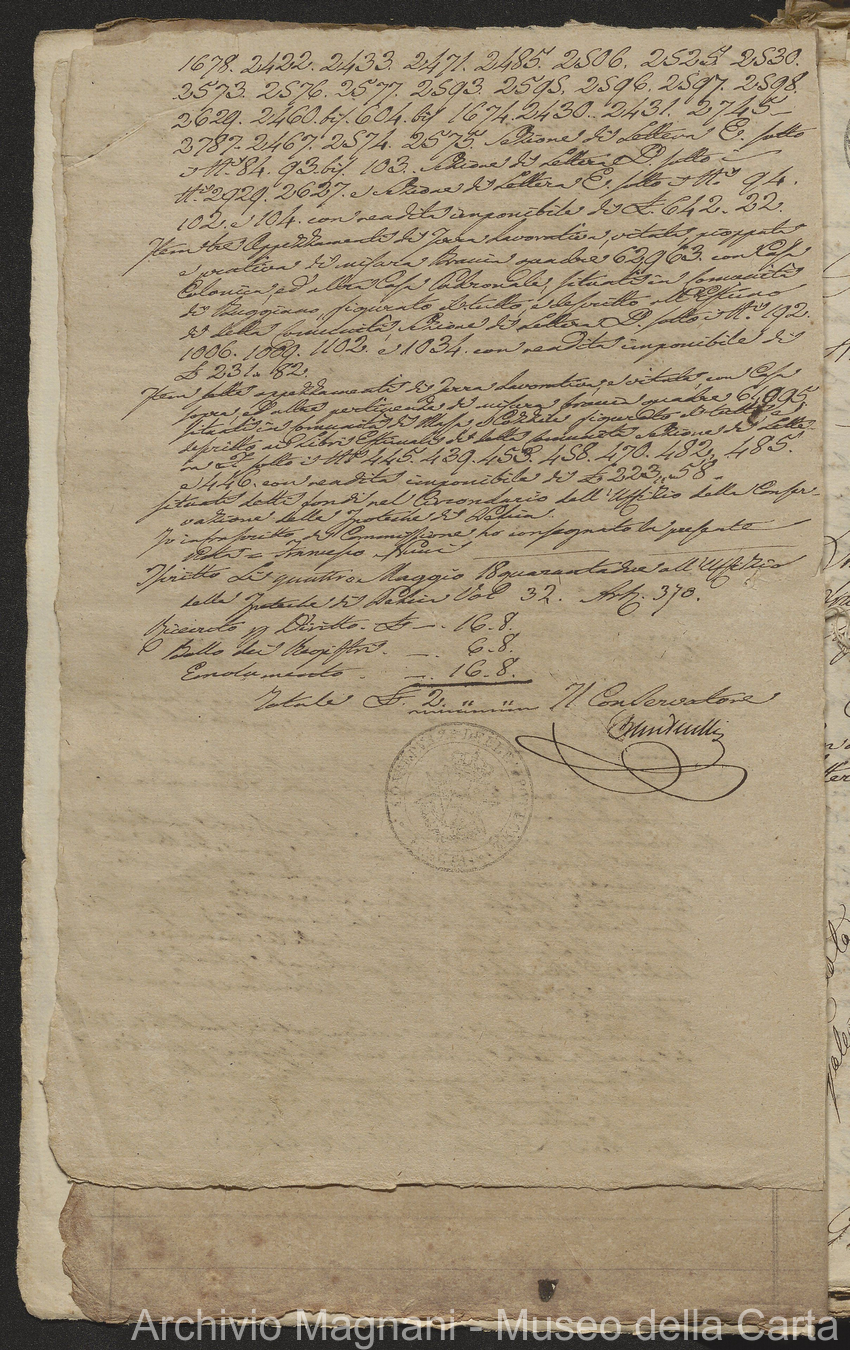 1678. 2422. 2433. 2471. 2485. 2506. 2525. 2530.
2573. 2576. 2577. 2593. 2595. 2596. 2597. 2598.
2629. 2460. bis. 604. bis 1674. 2430. 2431. 2745
2787. 2467. 2574. 2575. Sezione di Lettera E. sotto
i Nⁱ 84. 93. bis. 103. Sezione di Lettera D. sotto i
Nⁱ 2929. 2627. e Sezione di Lettera E. sotto i Nⁱ 94.
102. e 104. con rendita imponibile di £. 642. 22.
Item tre Appezzamenti di Terra lavorativa, vitata, pioppata
e prativa di misura Braccia quadre 62,963. con Casa
Colonica, ed altra Casa Padronale, situati in Comunità
di Buggiano, figurato il tutto, e descritto all'Estimo
di detta Comunità, Sezione di Lettera D. sotto i Nⁱ 192.
1006. 1009. 1102. e 1034. con rendita imponibile di
£ 231. 82.
Item sette appezzamenti di Terra lavorativa, e vitata con Casa
sopra ed altre pertinenze di misura braccia quadre 6,995
situati in Comunità di Massa e Cozzile, figurato il tutto, e
descritto ai Libri Estimali di detta Comunità Sezione di Lette-
ra sotto i Nⁱ 445. 439. 453. 458. 470. 482. 485.
e 446. con rendita imponibile di £ 223. 58.
Situati detti fondi nel Circondario dell'Uffizio della Conser-
vazione delle Ipoteche di Pescia.
Io infrascritto di Commissione ho consegnato la presente
Nota = Francesco
Iscritto Lì quattro Maggio 18quarantadue all'Uffizio
delle Ipoteche di Pescia Vol. 32. Art. 370.
Ricevuto p Diritto. £ -. 16. 8.
Bollo dei Registri. -. 6. 8.
Emolumento. -. 16. 8.
Totale £. 2. Il Conservatore
Archivio Magnani - Museo della Carta